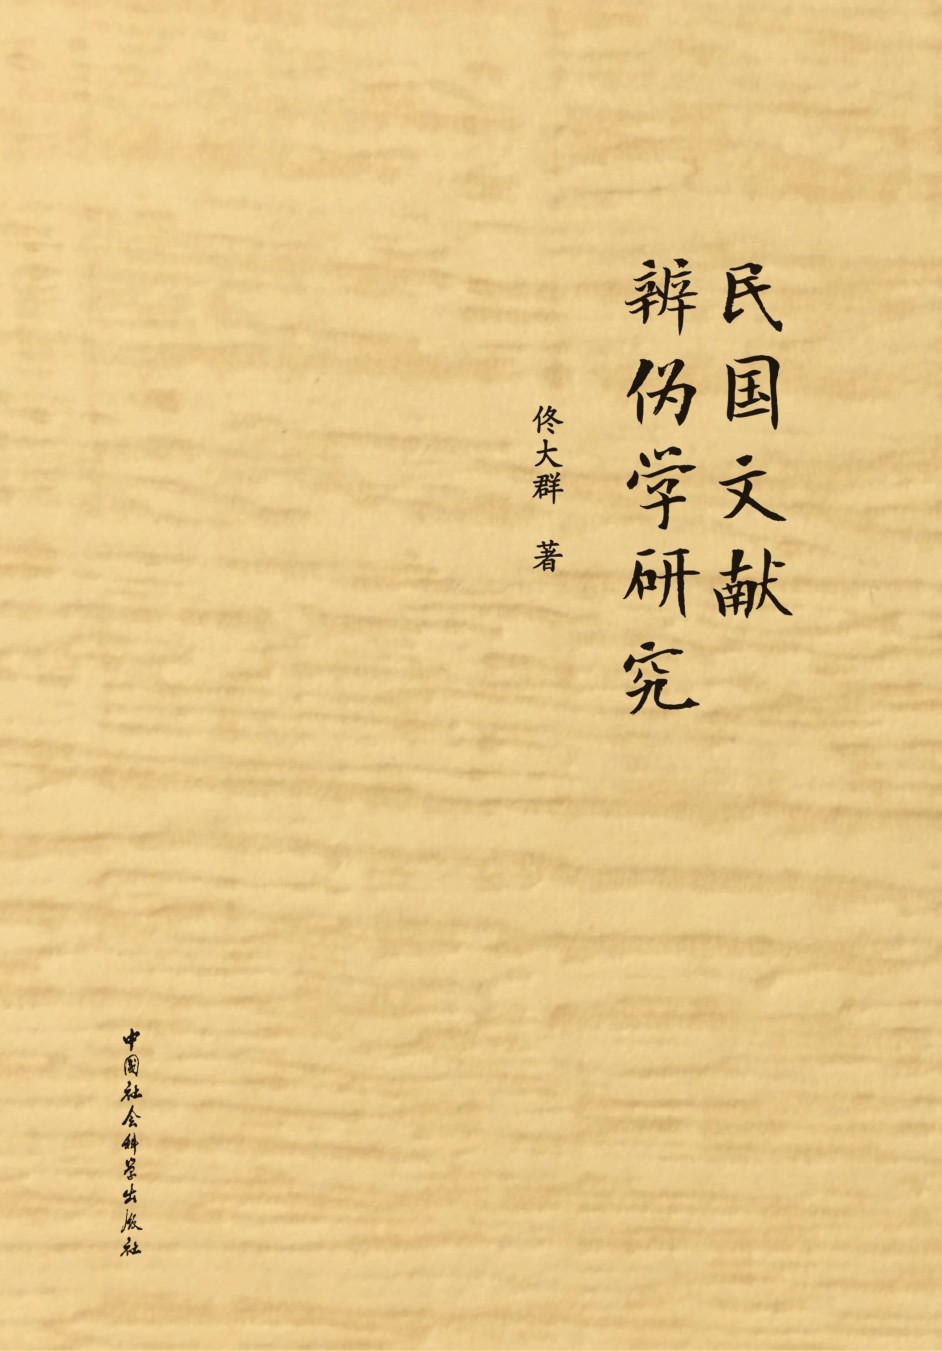 民国文献
辨伪学研究
佟大群 著
中国社会科学出版社